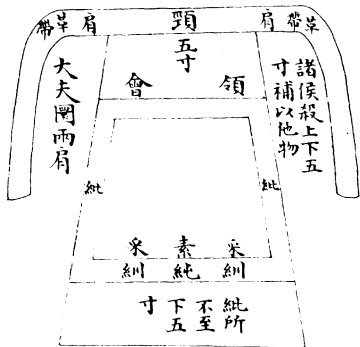 革帶
肩
頸
肩
革帶
五寸
領會
諸侯殺上下五
寸補以他物
大夫圜兩肩
紕
紕
采紃
素純
采紃
紕所
不至
下五
寸